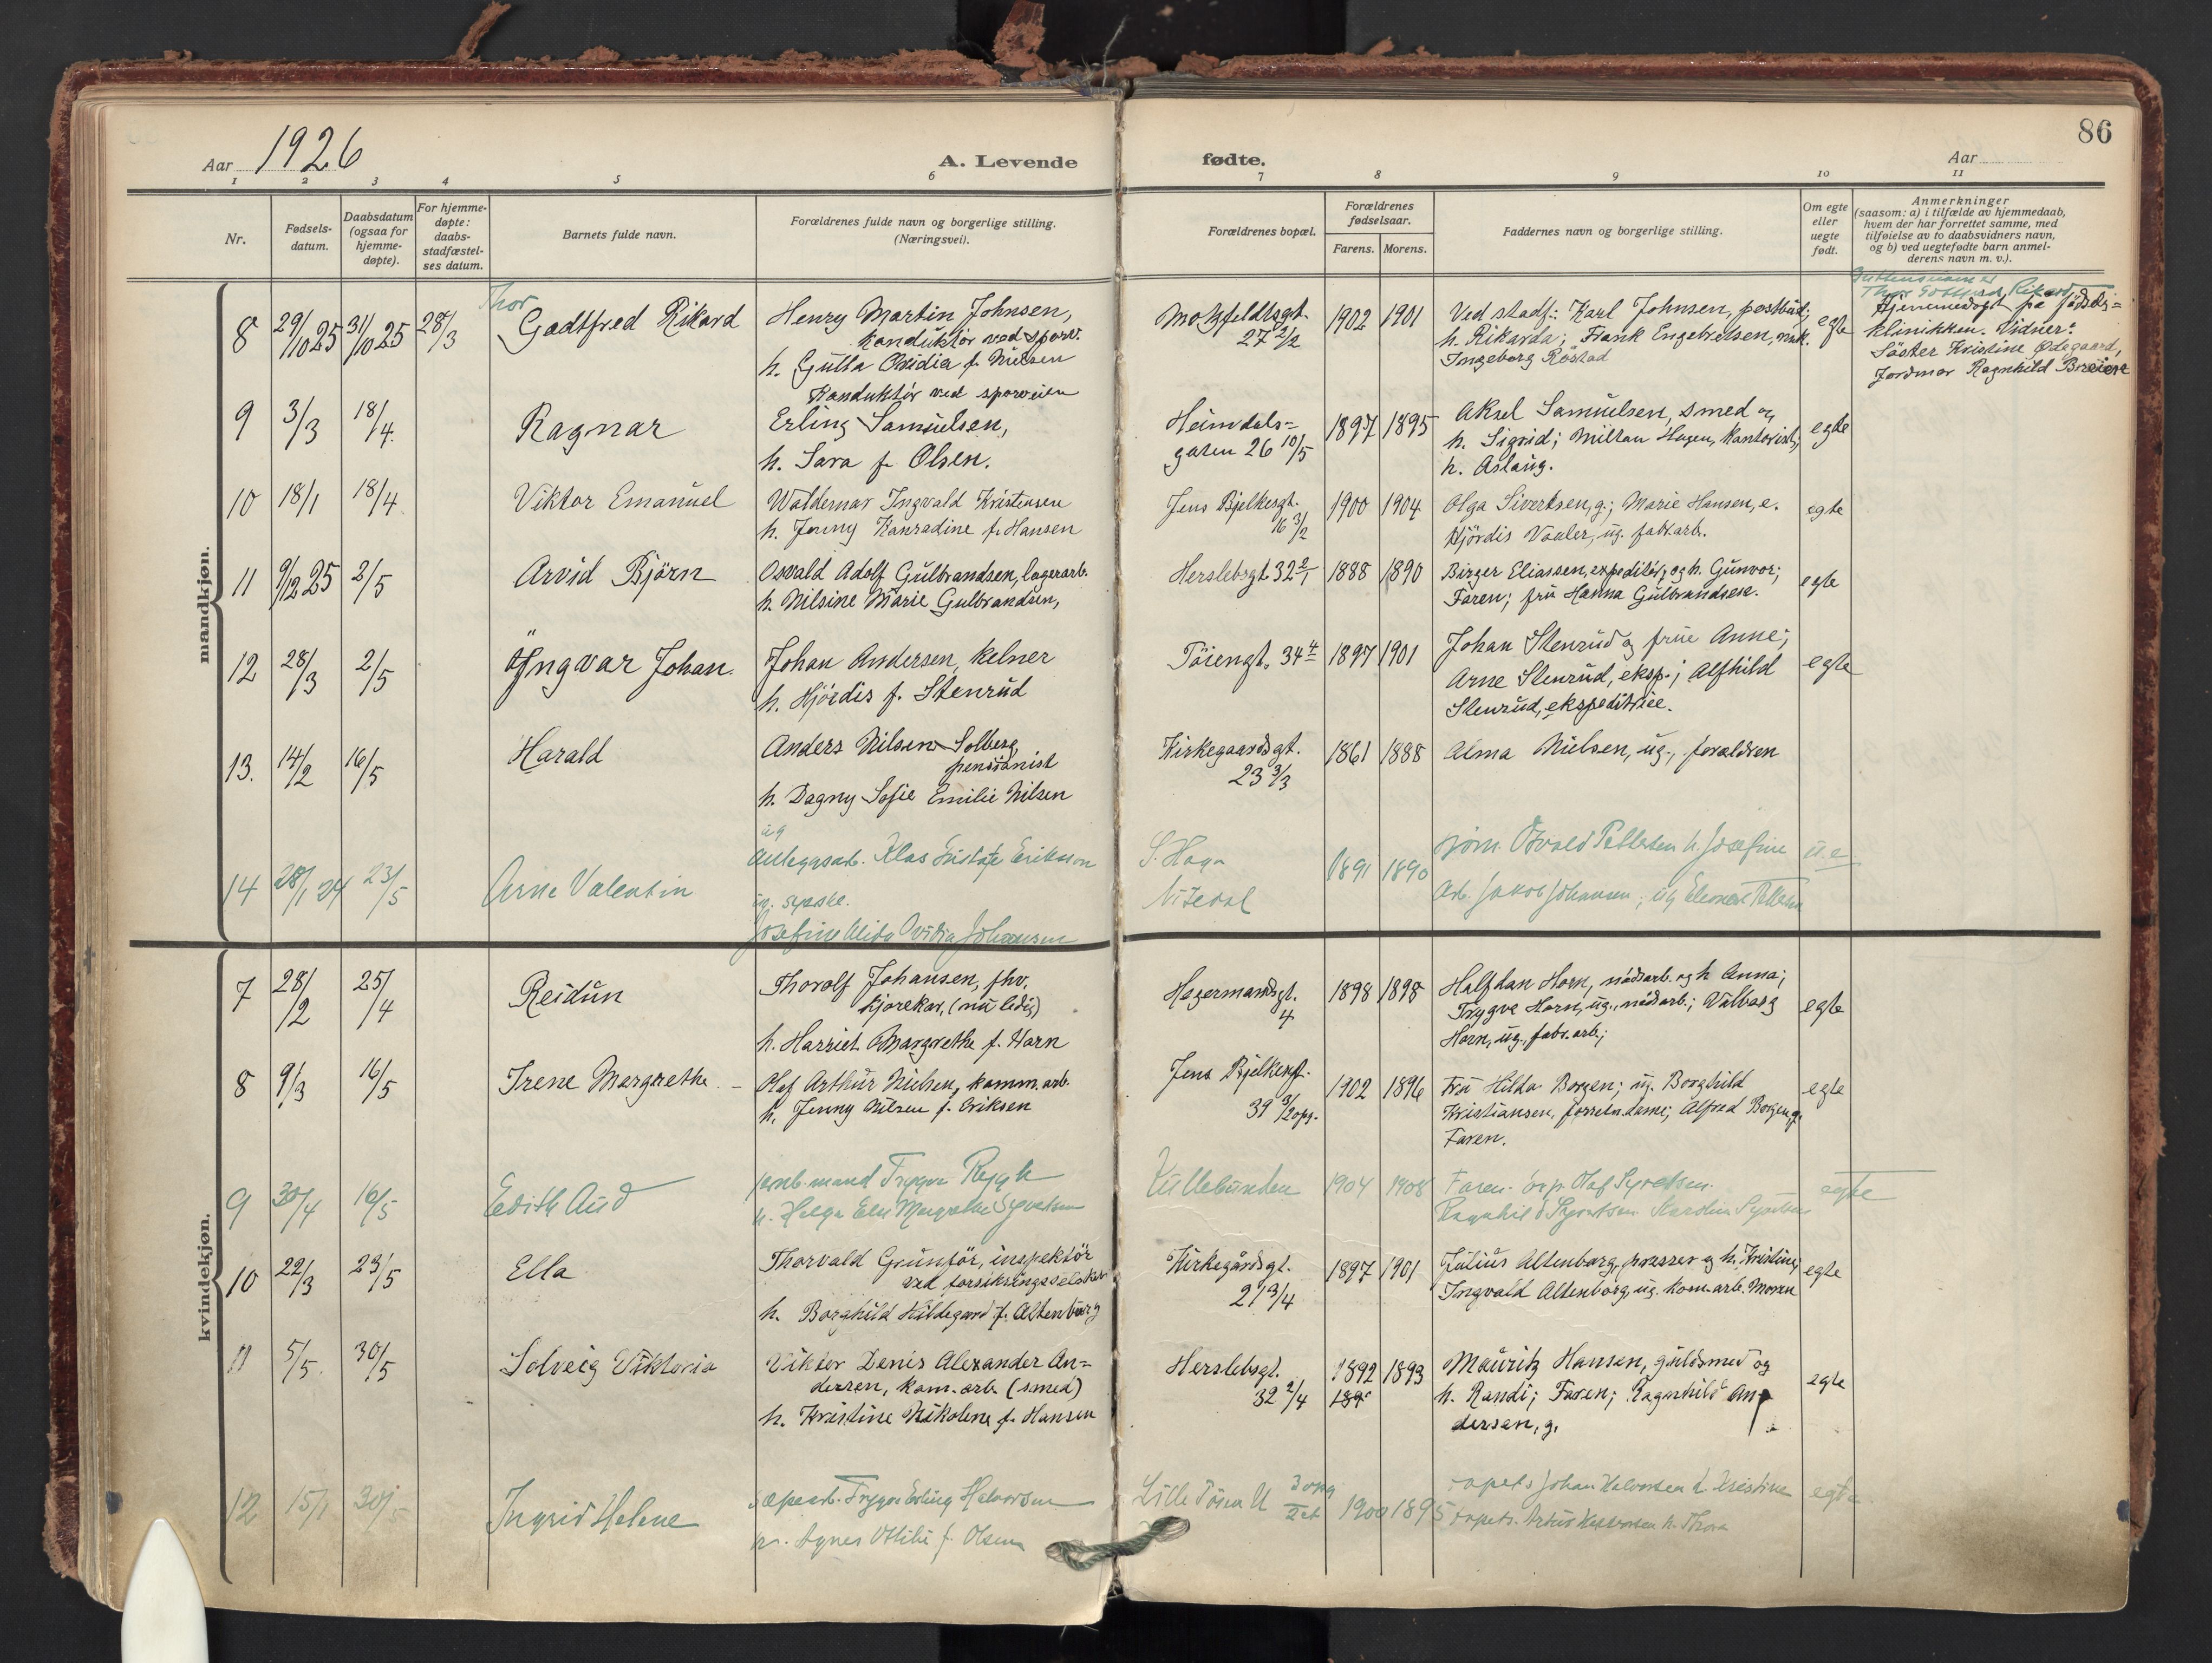 86
Aar 1926
A. Levende fødte.
Aar
1 2 3 4 5 6 7 8 9 10 11
Nr.
Fødsels-
datum.
Daabsdatum
(ogsaa for
hjemme-
døpte).
For hjemme-
døpte:
daabs-
stadfæstel-
ses datum.
Barnets fulde navn.
Forældrenes fulde navn og borgerlige stilling.
(Næringsvei).
Forældrenes bopæl.
Forældrenes
fødselsaar.
Farens. Morens.
Faddernes navn og borgerlige stilling.
Om egte
eller
uegte
født.
Anmerkninger
(saasom: a) i tilfælde av hjemmedaab,
hvem der har forrettet samme, med
tilføielse av to daabsvidners navn,
og b) ved uegtefødte barn anmel-
derens navn m. v.).
mandkjøn.
8 29/10 25 31/10 25 28/3
Thor
Godtfred Rikard
Henry Martin Johnsen,
konduktör ved sporv.
h. Gutta Ovidia f. Nielsen
Motzfeldtsgt.
27 2/2
1902 1901
Ved stadf.: Karl Johnsen, postbud;
h. Rikarda; Frank Engebretsen,
Ingeborg Röstad
egte
Thor Gottfred Rikard
Hjemmedöpt på födsels=
klinikken. Vidner:
Söster Kristine Ødegaard,
Jordmor Ragnhild
9 3/3 18/4.
Ragnar
Konduktör ved sporveien
Erling Samuelsen,
h. Sara f. Olsen.
Heimdals=
gaten 26 10/5
1897 1895
Aksel Samuelsen, smed og
h. Sigrid; Milton Hagen, kontorist,
h. Aslaug.
egte
10 18/1 18/4.
Viktor Emanuel
Waldemar Ingvald Kristensen
h. Jenny Konradine f. Hansen
Jens Bjelkesgt.
16 3/2
1900 1904
Olga Sivertsen, g.; Marie Hansen, e.
Hjördis Vaaler, ug. fabr.arb.
egte
11 9/12 25 2/5
Arvid Björn
Osvald Adolf Gulbrandsen, lagerarb.
h. Nilsine Marie Gulbrandsen,
Herslebsgt. 32 2/1
1888 1890
Birger Eliassen, expeditör, og h. Gunvor;
Faren; fru Hanna Gulbrandsen.
egte
12 28/3 2/5
Yngvar Johan.
Johan Andersen, kelner
h. Hjördis f. Stenrud
Töiengt. 34 4
1897 1901
Johan Stenrud og frue Anne;
Arne Stenrud, eksp.; Alfhild
Stenrud, ekspeditrice.
egte
13. 14/2 16/5
Harald
Anders Nilsen Solberg,
pensionist
h. Dagny Sofie Emilie Nilsen
Kirkegaardsgt.
23 3/3
1861 1888
Alma Nielsen, ug., forældren
14 28/1 24 23/5
Arne Valentin
ug
Anleggsarb. Klas Gustaf Erikson
ug. syerske.
Josefine Alida Ovidia Johansen
S. Hagn
Nitedal
1891 1890
Osvald Pettersen h. Josefine
Arb. Jakob Johansen; ug
u.e
kvindekjøn.
7 28/2 25/4
Reidun
Thorolf Johansen, fhv.
kjörekar, (nu ledig)
h. Harriet Margrethe f. Horn
Hegermandsgt.
4
1898 1898
Halfdan Horn, nödsarb. og h. Anna;
Trygve Horn, ug., nödsarb.; Valborg
Horn, ug., fabr.arb.;
egte
8 9/3 16/5
Irene Margrethe.
Olaf Arthur Nielsen, komm. arb.
h. Jenny Nilsen f. Eriksen
Jens Bjelkesgt.
39 3/2 opg.
1902 1896
Fru Hilda Borgen; ug. Borghild
Kristiansen, forretn.dame; Alfred Borgen, g.
Faren.
egte
9 30/4 16/5
Edith Aud
Trygve
h. Helga Else Margrethe Syvertsen
1904 1908
Faren. Olaf Syvertsen.
Ragnhild Syvertsen
egte
10 22/3 23/5
Ella
Thorvald Grunför, inspektör
ved forsikringsselskab
h. Borghild Hildegard f. Altenborg
Kirkegårdsgt.
21 3/4
1897 1901
Julius Altenborg, presser og h. Kristine;
Ingvald Altenborg, ug. kom.arb. Moren
egte
11 5/5. 30/5
Solveig Viktoria
Viktor Denis Alexander An=
dersen, kom. arb. (smed)
h. Kristine Nikolene f. Hansen
Herslebsgt.
32 2/4
1892 1893
189
Mauritz Hansen, guldsmed og
h. Randi; Faren; Ragnhild An
dersen, g.
egte
12 15/1 30/5
Ingrid Helene
Trygve Erling Halvorsen
h. Agnes Ottilie f. Olsen
Lille Töien
3 opg
2 et
1900 1895
tapets. Johan Halvorsen h. Kristine
tapets. Artur Halvorsen h. Thora
egte